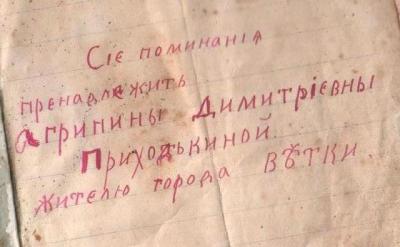 Сіе поминанія
пренадлежить
Агрипины Димитріевны
Приходькиной.
жителю города Вѣтки.